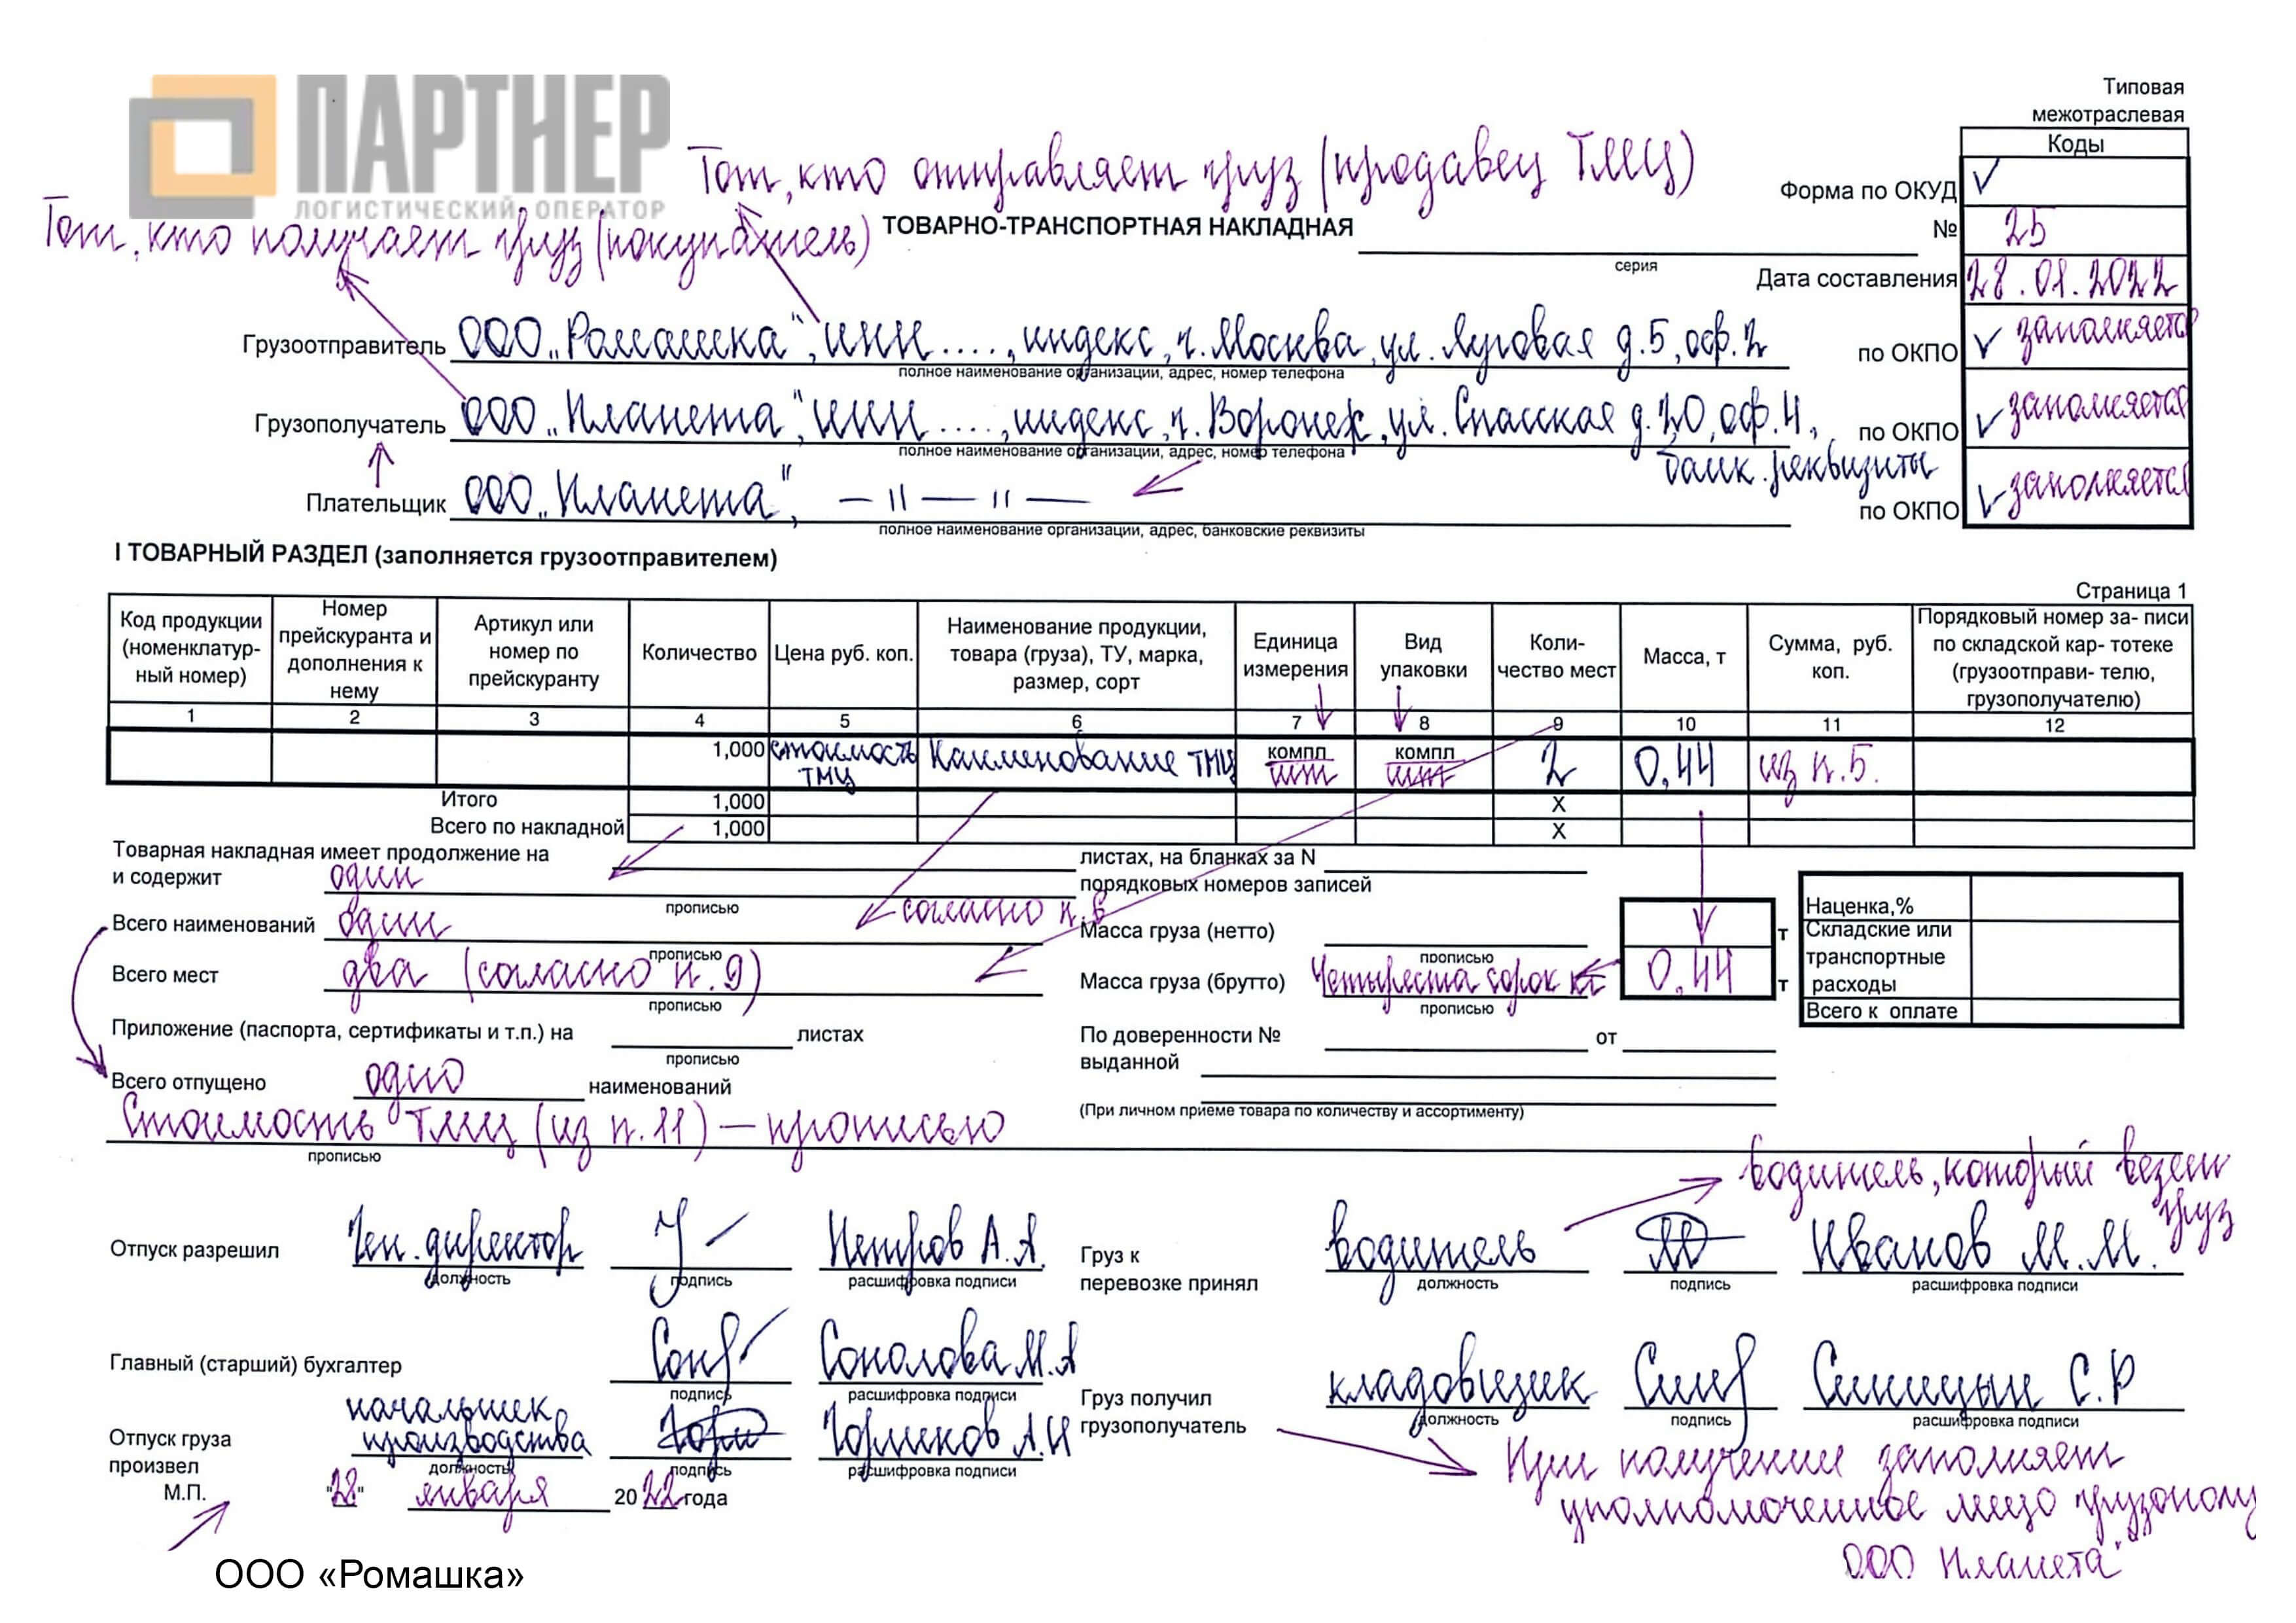 ПАРТНЕР
ЛОГИСТИЧЕСКИЙ ОПЕРАТОР
Типовая
межотраслевая
Коды
Тот, кто отправляет груз (продавец ТМЦ)
Форма по ОКУД
Тот, кто получает груз (покупатель)
ТОВАРНО-ТРАНСПОРТНАЯ НАКЛАДНАЯ
№ 25
серия
Дата составления 28.01.2022
Грузоотправитель ООО „Ромашка", ИНН...., индекс, г. Москва, ул. Луговая д.5, оф.2 по ОКПО заполняется
полное наименование организации, адрес, номер телефона
Грузополучатель ООО „Планета", ИНН...., индекс, г. Воронеж, ул. Спасская д.20, оф.4, по ОКПО заполняется
полное наименование организации, адрес, номер телефона
банк. реквизиты
Плательщик ООО „Планета", — " — " — по ОКПО заполняется
полное наименование организации, адрес, банковские реквизиты
I ТОВАРНЫЙ РАЗДЕЛ (заполняется грузоотправителем)
Страница 1
Код продукции (номенклатур- ный номер) Номер прейскуранта и дополнения к нему Артикул или номер по прейскуранту Количество Цена руб. коп. Наименование продукции, товара (груза), ТУ, марка, размер, сорт Единица измерения Вид упаковки Коли- чество мест Масса, т Сумма, руб. коп. Порядковый номер за- писи по складской кар- тотеке (грузоотправи- телю, грузополучателю)
1 2 3 4 5 6 7 8 9 10 11 12
1,000 стоимость ТМЦ Наименование ТМЦ компл шт компл шт 2 0,44 из п.5.
Итого 1,000 X
Всего по накладной 1,000 X
Товарная накладная имеет продолжение на листах, на бланках за N
и содержит один порядковых номеров записей
прописью
Всего наименований один согласно п.6 Масса груза (нетто) т
прописью прописью
Всего мест два (согласно п.9) Масса груза (брутто) Четыреста сорок кг 0,44 т
прописью прописью
Наценка,%
Складские или транспортные расходы
Всего к оплате
Приложение (паспорта, сертификаты и т.п.) на листах По доверенности № от
прописью
выданной
Всего отпущено одно наименований
(При личном приеме товара по количеству и ассортименту)
Стоимость ТМЦ (из п.11) — прописью
прописью
водитель, который везет груз
Отпуск разрешил Ген. директор Петров А.А. Груз к перевозке принял водитель Иванов М.М.
должность подпись расшифровка подписи должность подпись расшифровка подписи
Главный (старший) бухгалтер Соколова М.А
подпись расшифровка подписи
Груз получил грузополучатель кладовщик Синицын С.Р
должность подпись расшифровка подписи
Отпуск груза произвел начальник производства Горшков А.И
должность подпись расшифровка подписи
М.П. "28" января 2022 года
При получении заполняет
уполномоченное лицо грузополу
ООО Планета"
ООО «Ромашка»